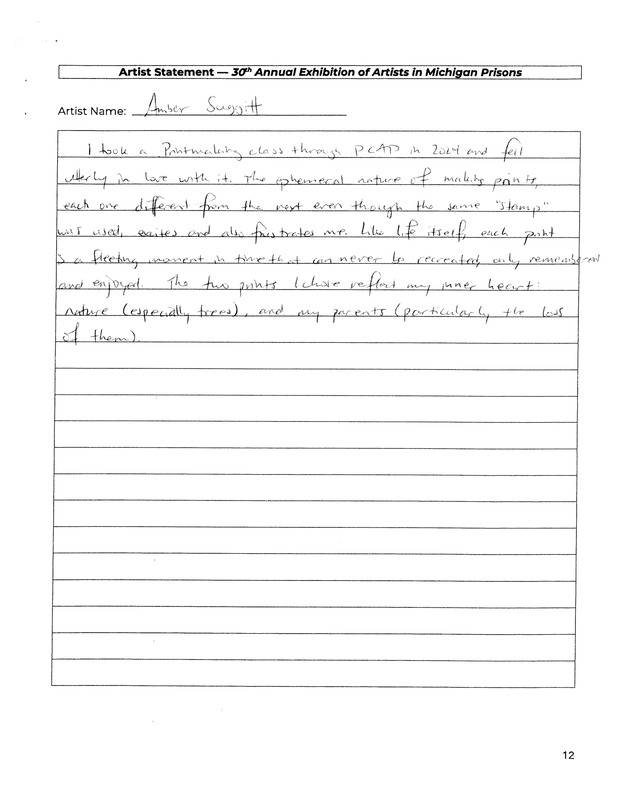 Artist Statement — 30th Annual Exhibition of Artists in Michigan Prisons
Artist Name: Amber Suggitt
I took a Printmaking class through PCAP in 2024 and fell
utterly in love with it. The ephemeral nature of making prints,
each one different from the next even though the same "stamp"
was used, excites and also frustrates me. Like life itself, each print
is a fleeting moment in time that can never be recreated, only remembered
and enjoyed. The two prints I chose reflect my inner heart:
nature (especially trees), and my parents (particularly the loss
of them).
12